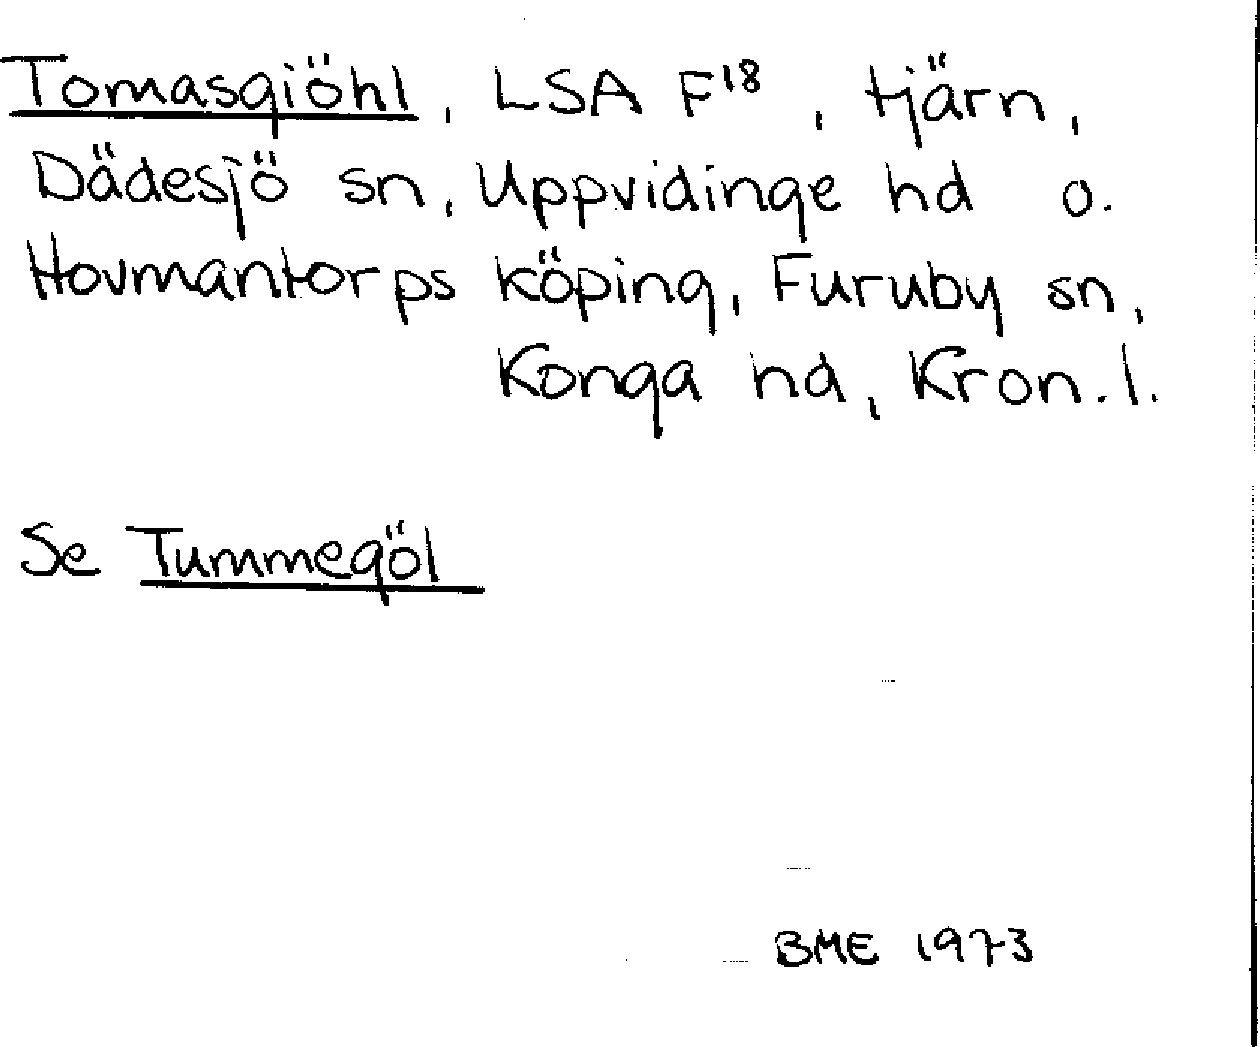 Tomasgiöhl, LSA F18, tjärn,
Dädesjö sn, Uppvidinge hd o.
Hovmantorps köping, Furuby sn,
Konga hd, Kron. l.
Se Tummegöl
BME 1973